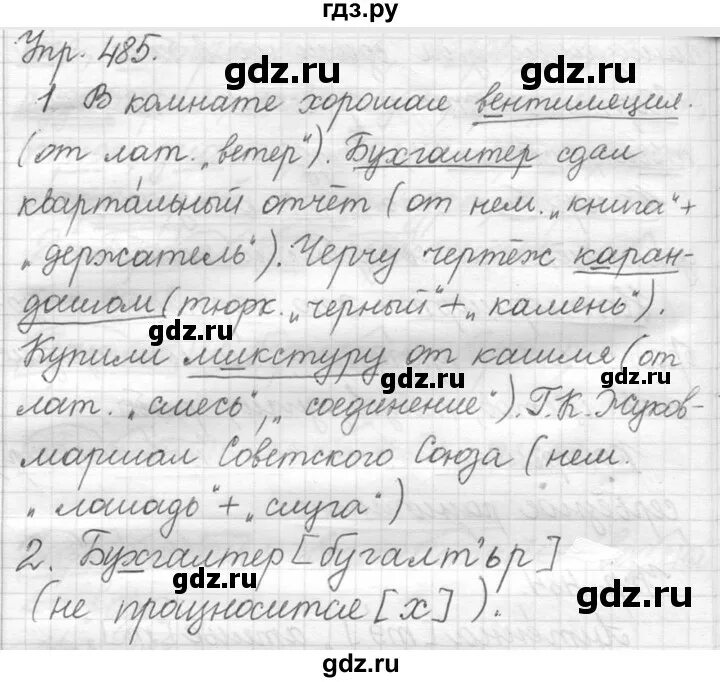 гдз.ру
Упр. 485.
gdz.ru gdz.ru
1 В комнате хорошая вентиляция.
(от лат. „ветер“). Бухгалтер сдал
gdz.ru
квартáльный отчёт (от нем. „книга“+
gdz.ru
„держатель“). Черчу чертёж каран-
дашом (тюрк. „черный“+„камень“).
gdz.ru
Купили микстуру от кашля (от
gdz.ru
лат. „смесь“, „соединение“). Г.К. Жуков-
gdz.ru
маршал Советского Союза (нем.
gdz.ru
„лошадь“+„слуга“)
2. Бухгалтер [бугалт'ър]
gdz.ru gdz.ru
(не произносится [х]).
gdz.ru
gdz.ru